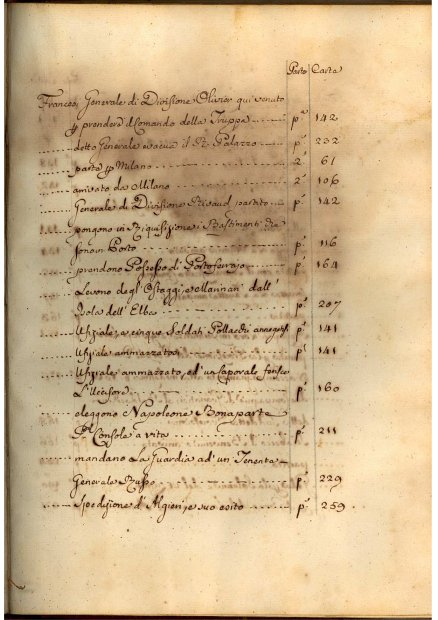 Parto Carta
Francesi, Generale di Divisione Olivier qui venuto
prendere il Comando della Truppa pª 142
detto Generale evacua il R. Palazzo pª 232
parte Milano 2ª 61
arrivato da Milano 2ª 106
Generale di Divisione Rivaud partito pª 142
pongono in Riquisizione i Bastimenti che
sono in Porto pª 116
prendono Possesso di Portoferrajo pª 164
Levono degl'Ostaggi, e Marinari dall'
Isola dell'Elba pª 207
Ufiziale, e cinque Soldati Pollacchi annegati pª 141
Ufiziale ammazzato pª 141
Ufiziale ammazzato, ed'un Caporale ferisce
L'Uccisore pª 160
eleggono Napoleone Bonaparte
Console a vita pª 211
mandano La Guardia ad'un Tenente
Generale Russo pª 229
Spedizione d'Algieri, e suo esito pª 259